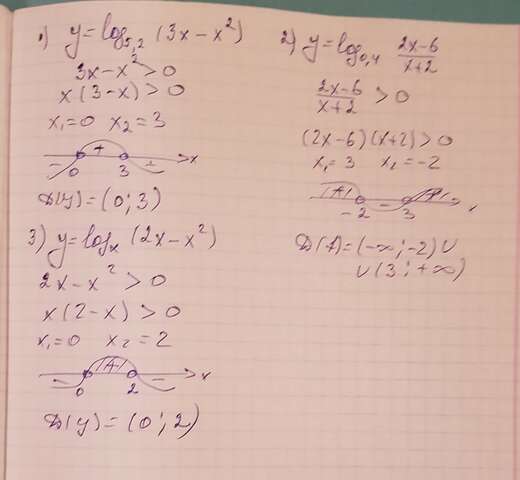 1) y = log₅,₂ (3x − x²)
3x − x² > 0
x(3 − x) > 0
x₁ = 0   x₂ = 3
− + − x
0 3
D(y) = (0; 3)
2) y = log₀,₄ (2x−6)/(x+2)
(2x−6)/(x+2) > 0
(2x−6)(x+2) > 0
x₁ = 3   x₂ = −2
+ − +
−2 3
D(f) = (−∞; −2) ∪
∪ (3; +∞)
3) y = logₓ (2x − x²)
2x − x² > 0
x(2 − x) > 0
x₁ = 0   x₂ = 2
− + − x
0 2
D(y) = (0; 2)